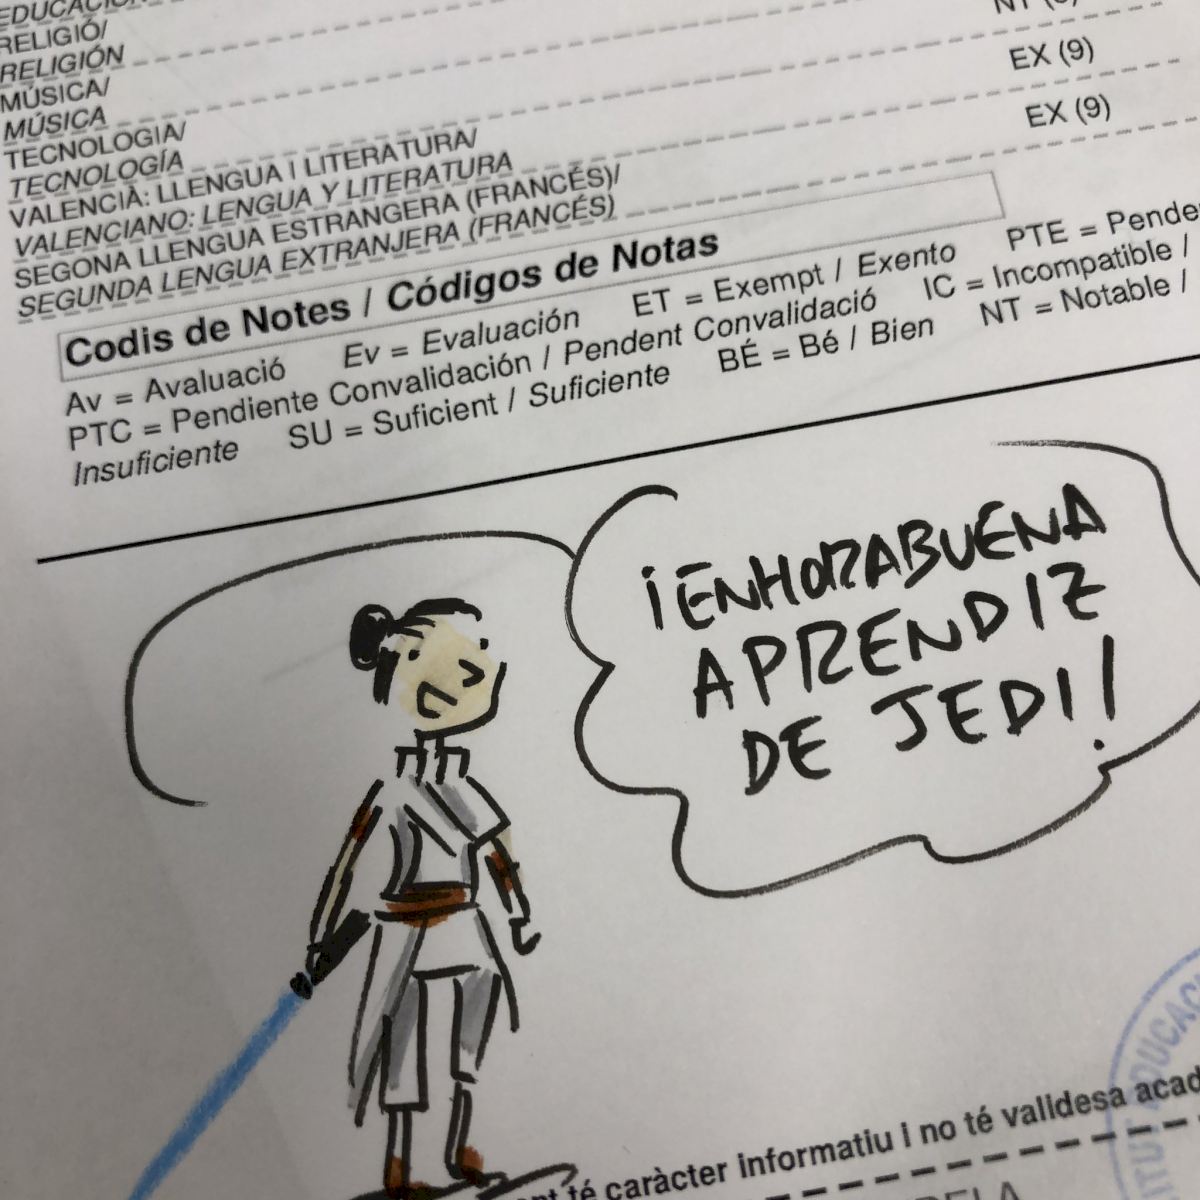 RELIGIÓ/
RELIGIÓN
MÚSICA/
MÚSICA
EX (9)
TECNOLOGIA/
TECNOLOGÍA
EX (9)
VALENCIÀ: LLENGUA I LITERATURA/
VALENCIANO: LENGUA Y LITERATURA
SEGONA LLENGUA ESTRANGERA (FRANCÉS)/
SEGUNDA LENGUA EXTRANJERA (FRANCÉS)
Codis de Notes / Códigos de Notas
Av = Avaluació Ev = Evaluación ET = Exempt / Exento PTE =
PTC = Pendiente Convalidación / Pendent Convalidació IC = Incompatible /
Insuficiente SU = Suficient / Suficiente BÉ = Bé / Bien NT = Notable /
¡ENHORABUENA
APRENDIZ
DE JEDI!
té caràcter informatiu i no té validesa